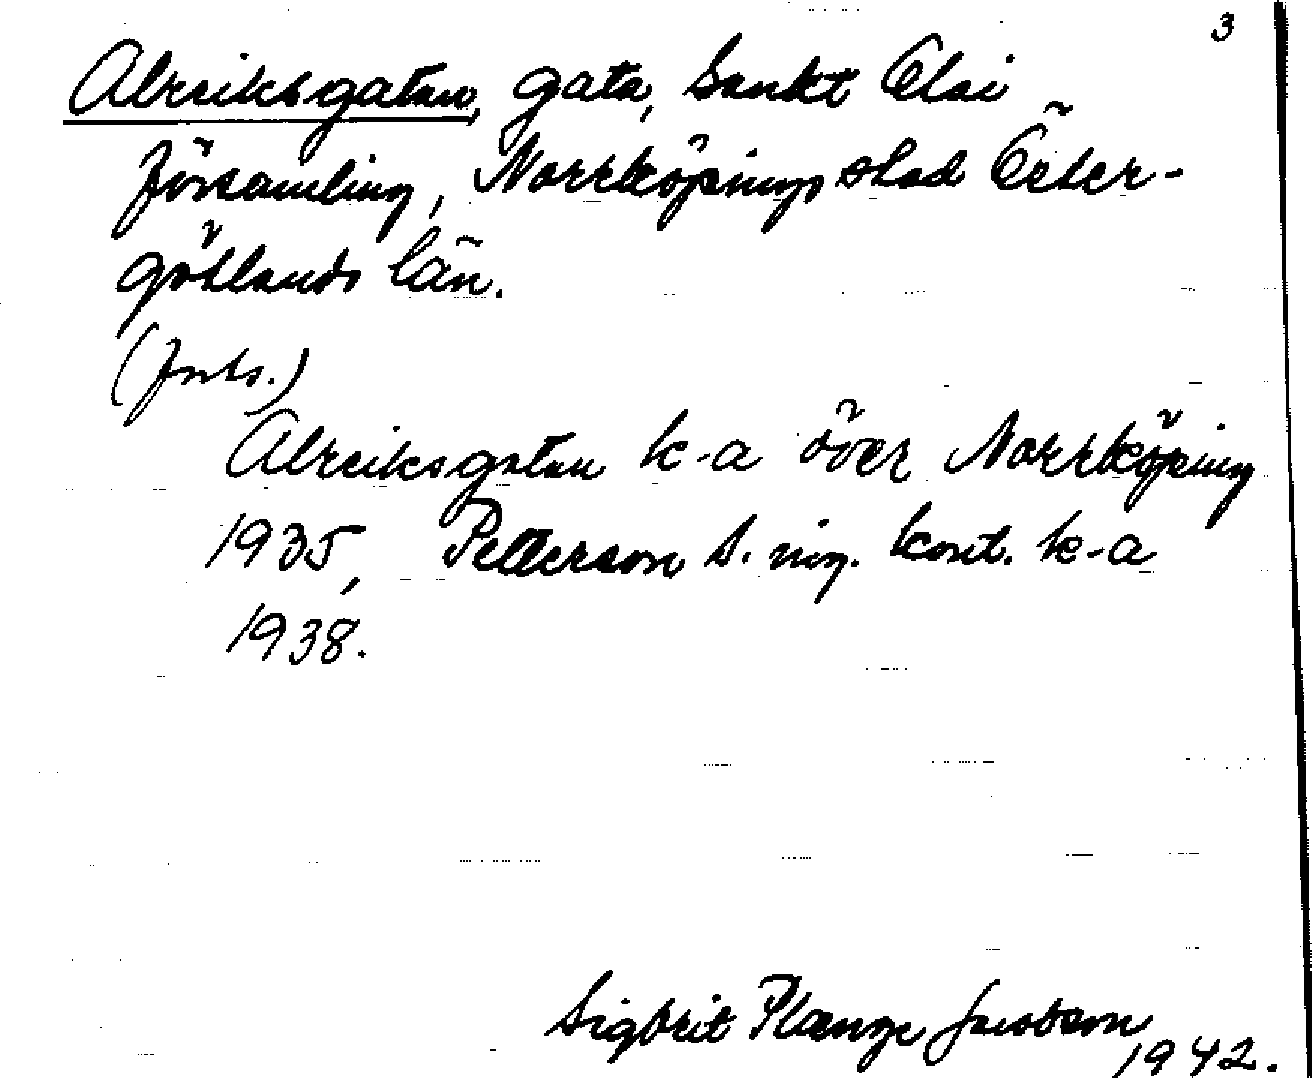 3
Alreiksgatan, gata, Sankt Olai
församling, Norrköpings stad Öster-
götlands län.
(forts.)
Alreiksgatan k-a över Norrköping
1935, Petterson s. ing. kont. k-a
1938.
Sigbrit Plænge Jacobson
1942.